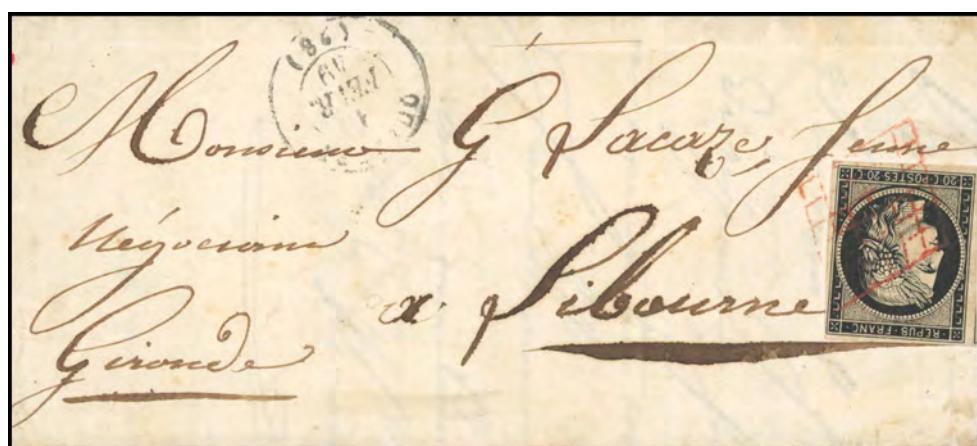 (86)
49
FEVR.
Monsieur G Lacaze Jeune
Négociant
a Libourne
Gironde
20·C·POSTES·20·C
·REPUB·FRANC·